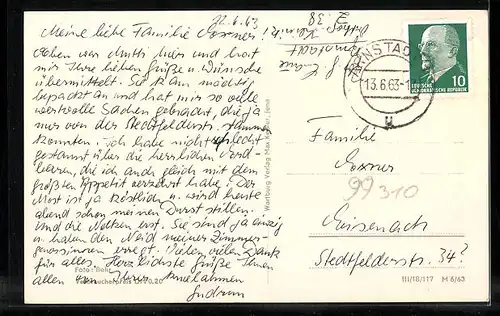 12.6.63
Meine liebe Familie
eben war Mutti hier und hat
mir Ihre lieben Grüße u. Wünsche
übermittelt. Sie kam mächtig
bepackt an und hat mir so viele
wertvolle Sachen gebracht, die ja
nur von der Stedtfelderstr. stammen
konnten. Ich habe nicht schlecht
gestaunt über die herrlichen Erd-
beeren, die ich auch gleich mit dem
größten Appetit verzehrt habe. Der
Most ist ja köstlich u. wird heute
abend schon meinen Durst stillen.
Und die Sie sind ja einzig
u. haben den Neid meiner Zimmer-
genossinnen erregt. Vielen vielen Dank
für alles. Herzlichste Grüße Ihnen
allen von Ihrer
Gudrun
ARNSTADT
13.6.63
u
10
DEUTSCHE
DEMOKRATISCHE REPUBLIK
Familie
99 310
Eisenach
Stedtfelderstr. 34?
Wartburg Verlag Max Jena
Foto:
Verbraucherpreis DM 0,20
III/18/117 M 6/63